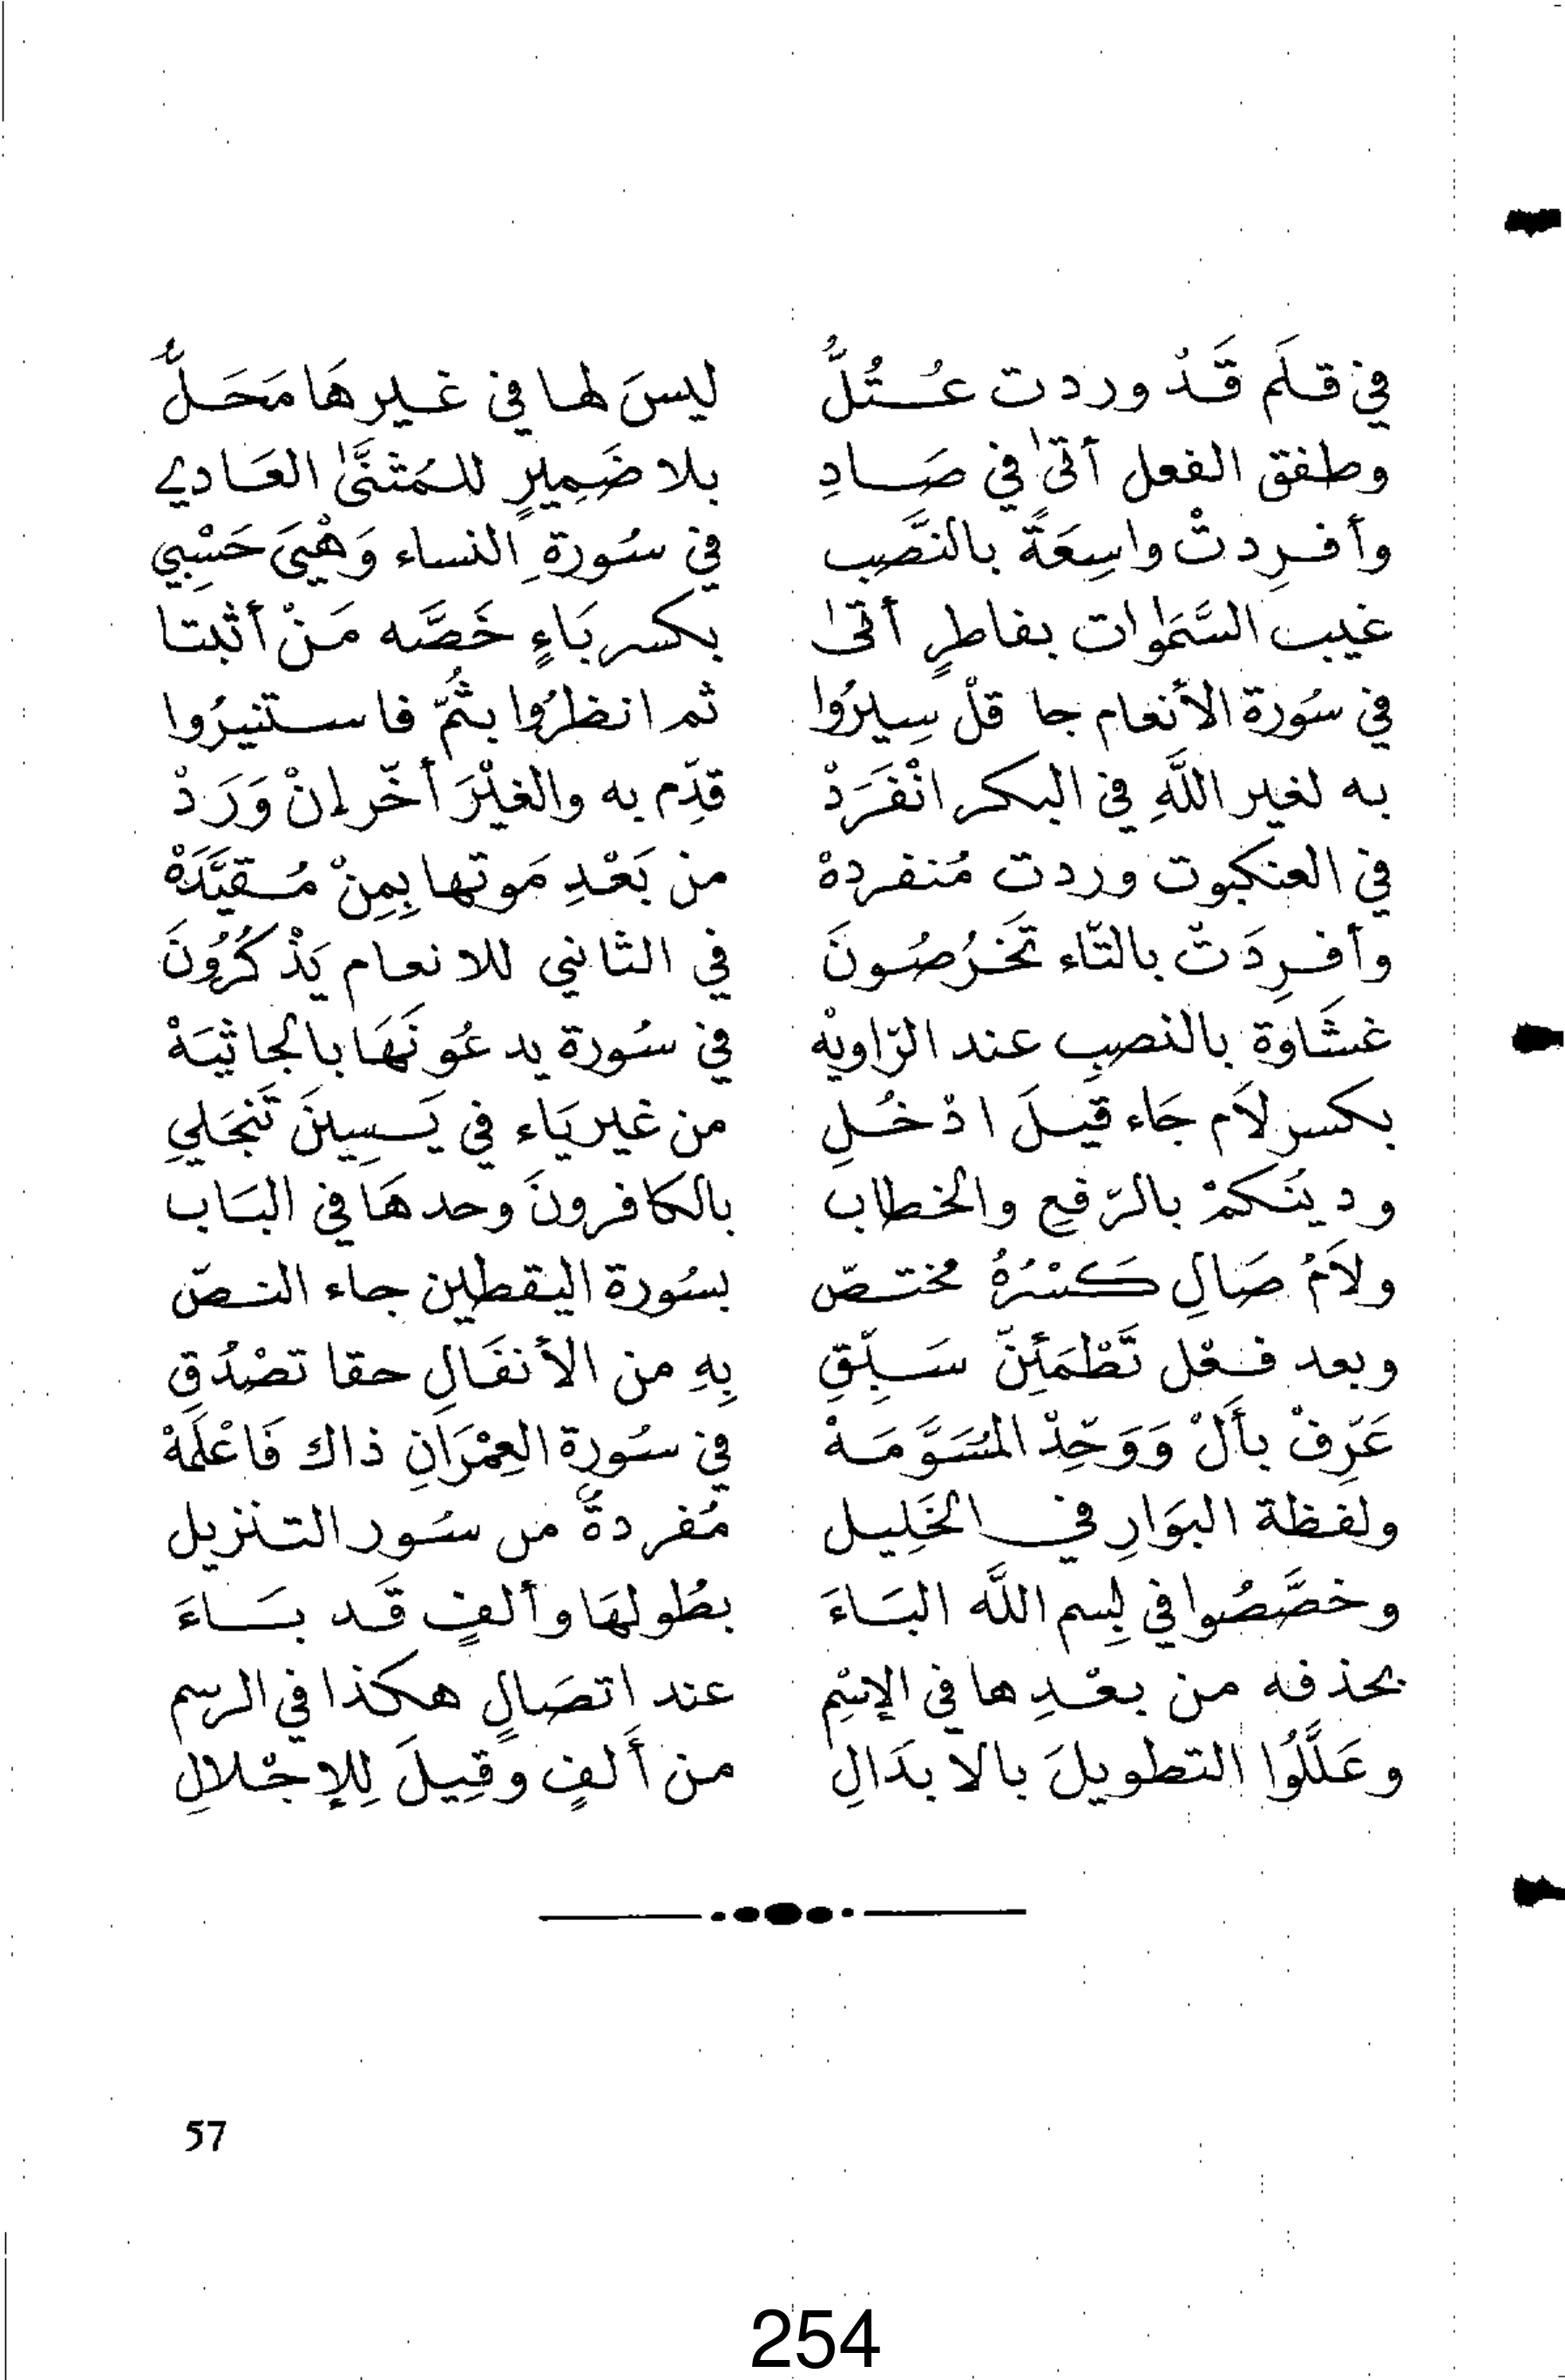 في قلَم قَدْ وردت عُتُلٌّ ليسَ لها في غيرهَا مَحَلٌّ
وطفق الفعل أتىٰ في صَادِ بلا ضَمِيرٍ للمُثَنَّىٰ العَادي
وأفرِدتْ واسِعَةً بالنَّصبِ في سُورةِ النساء وَهْيَ حَسْبِي
غيب السَّمٰوات بفاطرٍ أتىٰ بكسر بَاءٍ خَصَّه مَنْ أثبتا
في سُورة الأنعام جا قلْ سِيرُوا ثم انظرُوا بثُمّ فاستنيرُوا
به لغير اللَّهِ في البكر انْفَرَدْ قدّم به والغيْرَ أخّر إنْ وَرَدْ
في العنكبوت وردت مُنفردهْ من بَعْدِ مَوتها بِمِنْ مُقيَّدَهْ
وأفرِدَتْ بالتّاء تَخَرُصُونَ في الثاني للانعام يَذْكُرُونَ
غشَاوة بالنصبِ عند الرّاويهْ في سُورة يدعُونَهَا بالجاثيَهْ
بكسر لاَم جَاء قيلَ ادْخُلِ من غير يَاء في يَسِينَ تَنجَلِي
ودينُكمْ بالرّفع والخطاب بالكافرونَ وحدهَا في البَاب
ولاَمُ صَالِ كَسْرُهُ مختصّ بسُورة اليقطين جاء النصّ
وبعد فعْل تَطْمَئِنّ سَبِّقِ بِهِ من الأنفَالِ حقا تصْدُقِ
عَرّفْ بأَلْ وَوَحّدْ المُسَوَّمَهْ في سُورة العِمْرَانِ ذاك فَاعْلَمَهْ
ولفظة البَوَارِ في الخَلِيل مُفردةٌ من سُور التنزيل
وخصَّصُوا في بِسم اللَّه البَاءَ بطُولهَا وألفٍ قَد بَاءَ
بحذفه من بعْدِها في الإسْمِ عند اتصَالٍ هكذا في الرسم
وعَلَّلُوا التطويلَ بالابدَالِ من أَلفٍ وقِيلَ لِلإجْلالِ
57
254